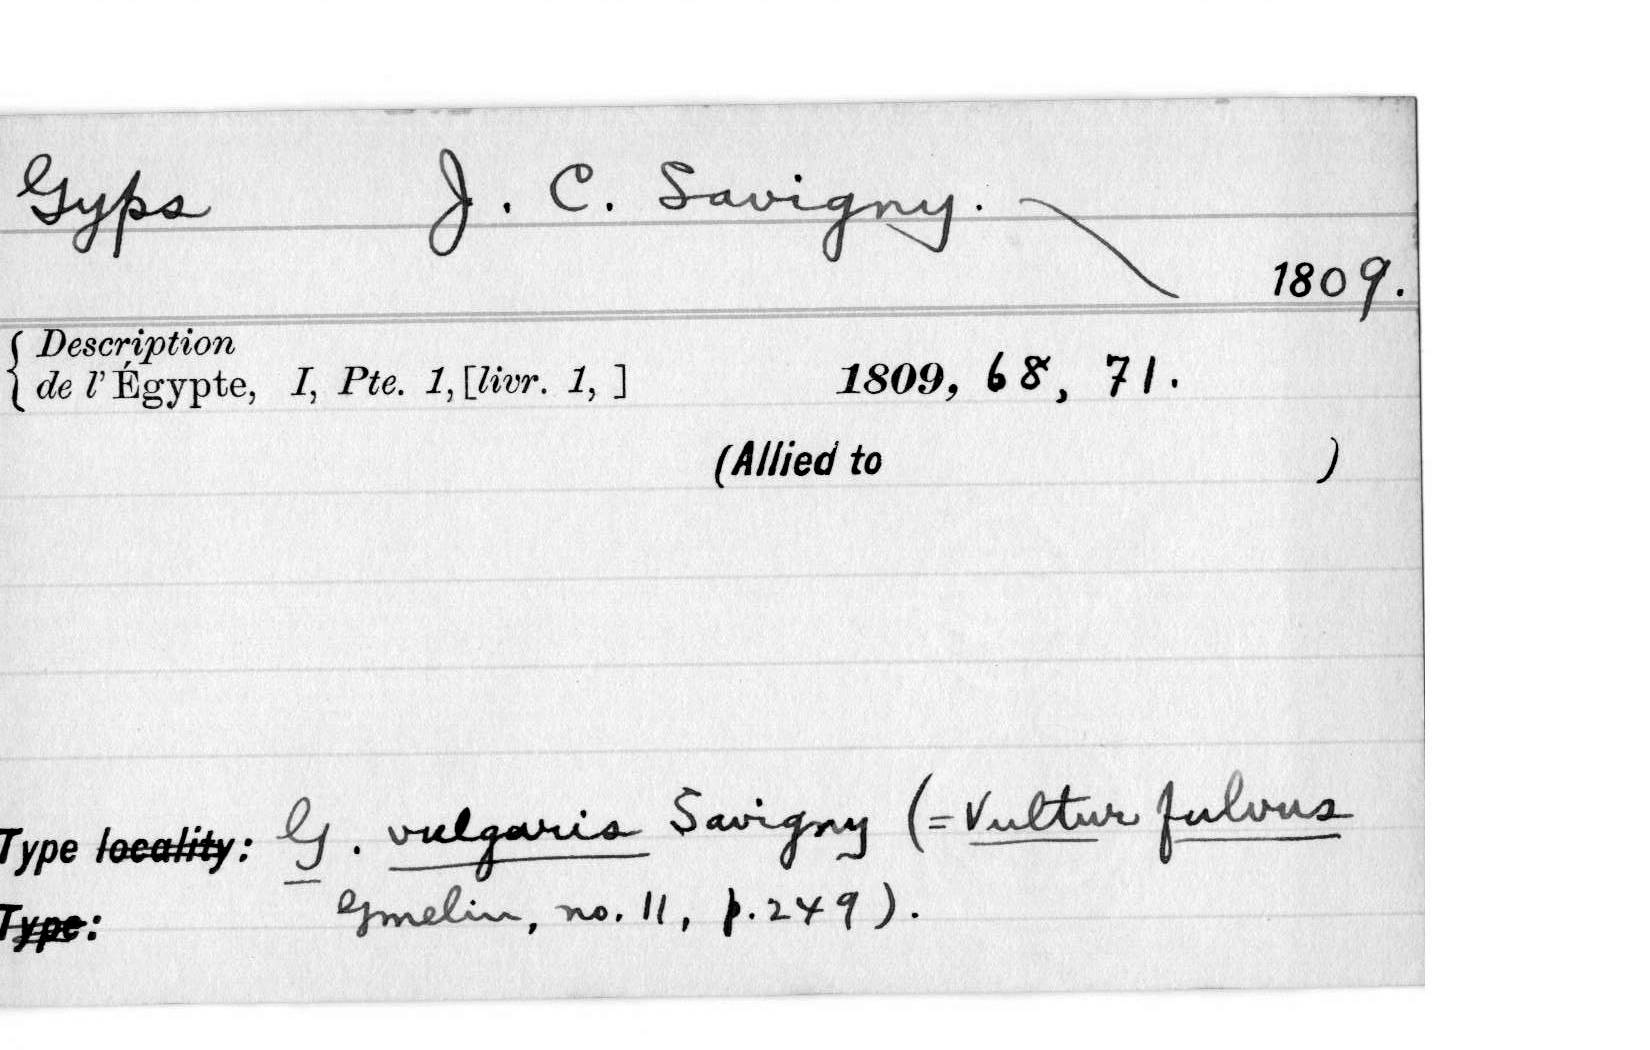 Gyps J. C. Savigny.
1809.
Description
de l'Égypte, I, Pte. 1, [livr. 1, ] 1809, 68, 71.
(Allied to )
Type locality: G. vulgaris Savigny (= Vultur fulvus
Type: Gmelin, no. 11, p. 249).